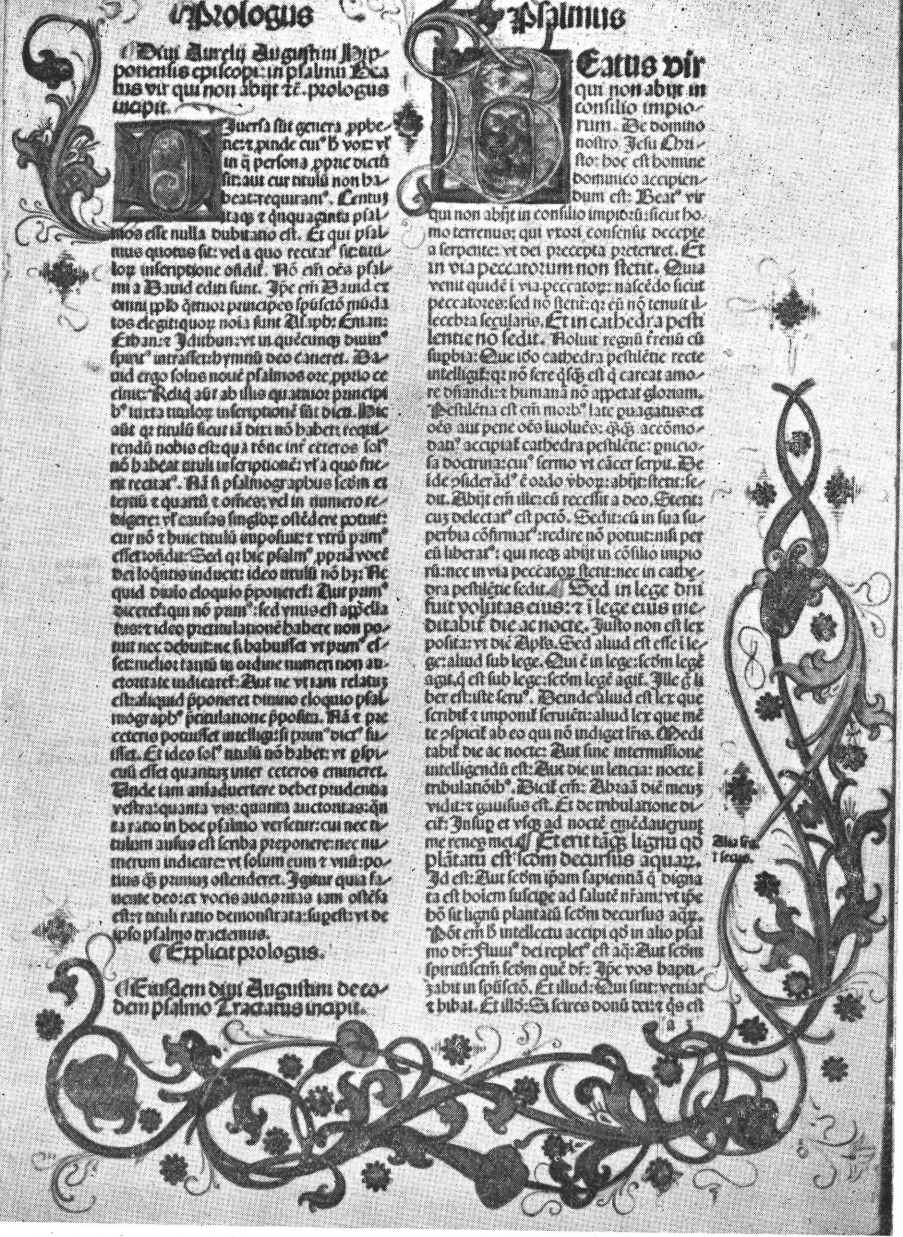 Prologus
¶Diui Aurelij Augustini Hip-
ponensis episcopi: in psalmū Bea
tus vir qui non abijt ⁊c̄. prologus
incipit.
Iuersa sūt genera
in q̄ persona ꝓprie dictū
sit: aut cur titulū non ha-
beat: requiramꝰ. Centuȝ
itaqȝ ⁊ q̄nquaginta psal-
mos esse nulla dubitatio est. Et qui psal-
mus quotus sit: vel a quo recitatꝰ sit: titu-
loꝝ inscriptione oñdit̄. Nō em̄ oēs psal-
mi a Dauid editi sunt. Ipe em̄ Dauid ex
omni pplo q̄ttuor principes
tos elegit: quoꝝ noīa sunt Asaph: Eman:
Ethan: ⁊ Idithun: vt in quēcunqȝ diuinꝰ
spūs intrasset: hymnū deo caneret. Da-
uid ergo solus nouē psalmos ore ꝓprio ce
cinit: Reliq̄ aūt ab illis quattuor principi
bꝰ iuxta tituloꝝ inscriptionē sūt dicti. Hic
aūt qꝛ titulū sicut iā dixi nō habet: requi-
rendū nobis est: qua rōne int̄ ceteros solꝰ
nō habeat tituli inscriptionē: vl̄ a quo fue-
rit recitatꝰ. Nā si psalmographus scd̄m et
tertiū ⁊ quartū ⁊ oēs: vel in numero re-
digere: vl̄ causas singloꝝ ostēdere potuit:
cur nō ⁊ huic titulū imposuit: ⁊ vtrū primꝰ
esset oñdit: Sed qꝛ hic psalmꝰ ꝓpriā vocē
dei loq̄ntis inducit: ideo titulū nō hȝ: Ne
quid diuio eloquio p̄poneret̄: Aut primꝰ
diceret̄: qui nō primꝰ: sed vnus est appella
tus: ⁊ ideo pretitulationē habere non po-
tuit nec debuit: ne si habuisset vt primꝰ es-
set: melior tantū in ordine numeri non au-
ctoritate indicaret̄: Aut ne vt iam relatuȝ
est: aliquid p̄poneret diuino eloquio psal-
mographꝰ p̄titulatione p̄posita. Nā ⁊ pre
ceteris potuisset intelligi: si primꝰ dictꝰ fu-
isset. Et ideo solꝰ titulū nō habet: vt ꝑspi-
cuū esset quantuȝ inter ceteros emineret.
Unde iam aīaduertere debet prudentia
vestra: quanta vis: quanta auctoritas: q̄n
ta ratio in hoc psalmo versetur: cui nec ti-
tulum ausus est scriba preponere: nec nu-
merum indicare: vt solum eum ⁊ vnū: po-
tius q̄ȝ primuȝ ostenderet. Igitur quia fa-
uente deo: et vocis auctoritas iam ostēsa
est: ⁊ tituli ratio demonstrata: supest: vt de
ipso psalmo tractemus.
¶Explicit prologus.
¶Eiusdem diui Augustini de eo-
dem psalmo Tractatus incipit.
Psalmus
Beatus vir
qui non abijt in
consilio impio-
rum. De domino
nostro Jesu Chri-
sto: hoc est homine
dominico accipien-
dum est: Beatꝰ vir
qui non abijt in consilio impioꝝ: sicut ho-
mo terrenus: qui vxori consensit decepte
a serpente: vt dei precepta preteriret. Et
in via peccatorum non stetit. Quia
venit quidē ī via peccatoꝝ: nascēdo sicut
peccatores: sed nō stetit: qꝛ eū nō tenuit il-
lecebra secularis. Et in cathedra pesti
lentie nō sedit. Noluit regnū t̄renū cū
supbia: Que iō cathedra pestilētie recte
intelligit̄: qꝛ nō fere q̄sq̄ȝ est q̄ careat amo-
re dn̄andi: ⁊ humanā nō appetat gloriam.
Pestilētia est em̄ morbꝰ late ꝑuagatus: et
oēs aut pene oēs īuoluēs: q̄q̄ȝ accōmo-
datiꝰ accipiat̄ cathedra pestilētie: ꝑnicio-
sa doctrina: cuiꝰ sermo vt cācer serpit. De
īde ꝯsiderādꝰ ē ordo v̄boꝝ: abijt: stetit: se-
dit. Abijt em̄ ille: cū recessit a deo. Stetit:
cuȝ delectatꝰ est pctō. Sedit: cū in sua su-
perbia cōfirmatꝰ: redire nō potuit: nisi per
eū liberatꝰ: qui neqȝ abijt in cōsilio impio
rū: nec in via peccatoꝝ stetit: nec in cathe-
dra pestilētie sedit. ¶Sed in lege dn̄i
fuit volūtas eius: ⁊ ī lege eius me-
ditabit̄ die ac nocte. Justo non est lex
posita: vt dič Apl̄s. Sed aliud est esse ī le-
ge: aliud sub lege. Qui ē in lege: scd̄m legē
agit. q̄ est sub lege: scd̄m legē agit̄. Ille q̄ li
ber est: iste seruꝰ. Deinde aliud est lex que
scribit̄ ⁊ imponit̄ seruiēti: aliud lex que mē
te ꝯspicit̄ ab eo qui nō indiget lr̄is. Medi
tabit̄ die ac nocte: Aut sine intermissiōe
intelligendū est: Aut die in leticia: nocte ī
tribulatiōibꝰ. Dicit em̄: Abraā diē meuȝ
vidit: ⁊ gauisus est. Et de tribulatione di-
cit̄: Insuꝑ et vsqȝ ad noctē
me renes mei. ¶Et erit tāqȝ lignū qd̄
plātatū est scd̄m decursus aquaꝝ.
Id est: Aut scd̄m ip̄am sapientiā q̄ digna
ta est hoīem suscipe ad salutē nr̄am: vt ip̄e
hō sit lignū plantatū scd̄m decursus aq̄ꝝ.
Pōt em̄ h̄ intellectu accipi qd̄ in alio psal
mo dr̄: Fluuiꝰ dei repletꝰ est aq̄: Aut scd̄m
spiritūsctm̄ scd̄m quē dr̄: Ipe vos bapti-
zabit in spūsctō. Et illd̄: Qui sitit: veniat
⁊ bibat. Et illd̄: Si scires donū dei: ⁊ q̄s est
Alia
⁊ secus.
a